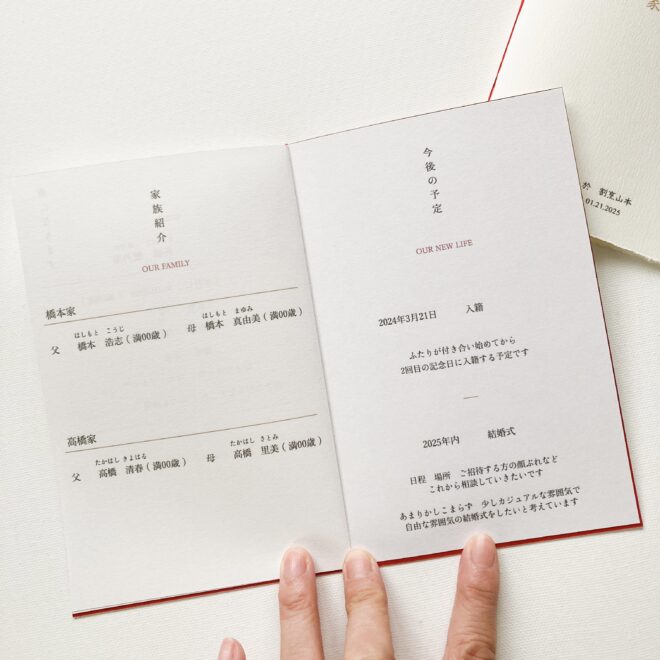 家族紹介
OUR FAMILY
橋本家
はしもと こうじ はしもと まゆみ
父 橋本 浩志(満00歳) 母 橋本 真由美(満00歳)
高橋家
たかはし きよはる たかはし さとみ
父 高橋 清春(満00歳) 母 高橋 里美(満00歳)
今後の予定
OUR NEW LIFE
2024年3月21日 入籍
ふたりが付き合い始めてから
2回目の記念日に入籍する予定です
2025年内 結婚式
日程 場所 ご招待する方の顔ぶれなど
これから相談していきたいです
あまりかしこまらず 少しカジュアルな雰囲気で
自由な雰囲気の結婚式をしたいと考えています
於 割烹山本
01.21.2025